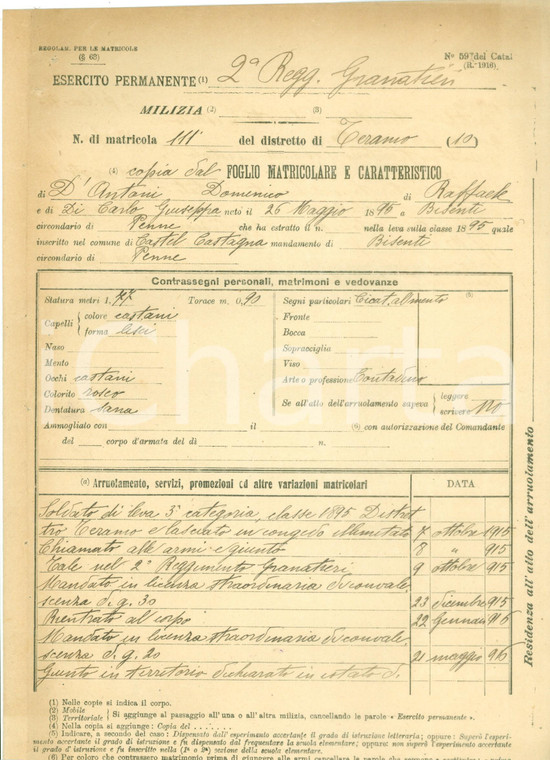 REGOLAM. PER LE MATRICOLE
(§ 63)
N° 597 del Catal
(R. 1916)
ESERCITO PERMANENTE (1) 2° Regg. Granatieri
MILIZIA (2) (3)
N. di matricola 111 del distretto di Teramo (10)
(4) copia dal FOGLIO MATRICOLARE E CARATTERISTICO
di D'Antoni Domenico di Raffaele
e di Di Carlo Giuseppa nato il 26 Maggio 1895 a Bisenti
circondario di Penne che ha estratto il n. nella leva sulla classe 1895 quale
inscritto nel comune di Castel Castagna mandamento di Bisenti
circondario di Penne
Contrassegni personali, matrimoni e vedovanze
Statura metri 1, 77 Torace m. 0,90
Capelli colore castani
forma lisci
Naso
Mento
Occhi castani
Colorito roseo
Dentatura sana
Segni particolari Cicat. al mento (5)
Fronte
Bocca
Sopracciglia
Viso
Arte o professione Contadino
Se all'atto dell'arruolamento sapeva leggere
scrivere No
Ammogliato con il (6) con autorizzazione del Comandante
del corpo d'armata del di n.
Arruolamento, servizi, promozioni ed altre variazioni matricolari DATA
Soldato di leva 3ª categoria, classe 1895 Distret
tro Teramo e lasciato in congedo illimitato 7 ottobre 1915
Chiamato alle armi e giunto 8 " 915
Tale nel 2° Reggimento Granatieri 9 ottobre 915
Mandato in licenza straordinaria di convale
scenza di g. 30 23 dicembre 915
Rientrato al corpo 22 Gennaio 916
Mandato in licenza straordinaria di convale
scenza di g. 20 21 maggio 916
Giunto in territorio dichiarato in istato di
Residenza all'atto dell'arruolamento
(1) Nelle copie si indica il corpo.
(2) Mobile
(3) Territoriale
Si aggiunge al passaggio all'una o all'altra milizia, cancellando le parole « Esercito permanente ».
(4) Nella copia si aggiunge: Copia del . . . . . . .
(5) Indicare, a secondo del caso: Dispensato dall'esperimento accertante il grado di istruzione letteraria; oppure: Superò l'esperi-
mento accertante il grado di istruzione e fu dispensato dal frequentare la scuola elementare; oppure: non superò l'esperimento accertante
il grado d'istruzione e fu inscritto nella (1ª o 2ª) sezione della scuola elementare.
iCharta